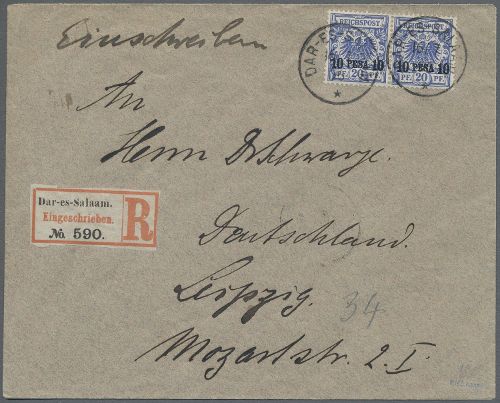 Einschreiben
REICHSPOST REICHSPOST
10 PESA 10 10 PESA 10
PF. 20 PF. PF. 20 PF.
DAR-ES-
An
Herrn Dr Schwarze.
Dar-es-Salaam.
Eingeschrieben.
№ 590.
R
Deutschland.
Leipzig.
34
Mozartstr. 2. I.